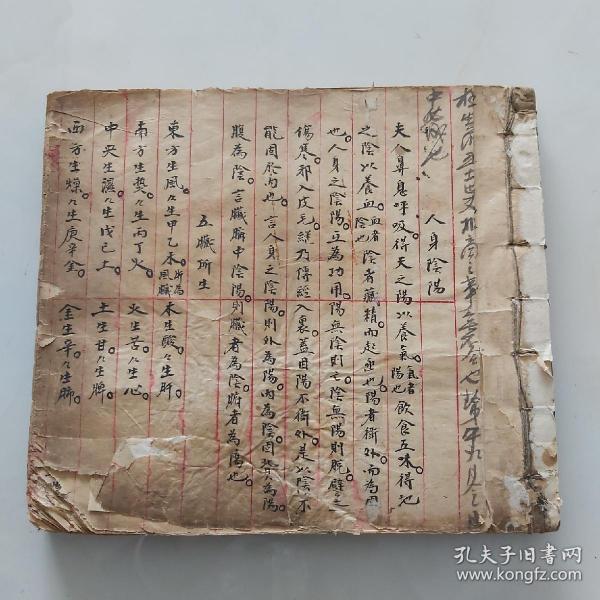 人身陰陽
夫人鼻息呼吸得天之陽以養氣氣者陽也飲食五味得地
之陰以養血血者陰也陰者藏精而起亟也陽者衛外而為固
也人身之陰陽互為功用陽無陰則亡陰無陽則脫譬之
傷寒邪入皮毛鮮乃傳經入裏蓋因陽不衛外是以陰不
能固於內也言人身之陰陽則外為陽內為陰因背為陽
腹為陰言臟腑中陰陽則臟者為陰腑者為陽也
五臟所生
東方生風々生甲乙木所為風臟木生酸々生肝
南方生熱々生丙丁火火生苦々生心
中央生濕々生戊己土土生甘々生脾
西方生燥々生庚辛金金生辛々生肺
孔夫子旧书网
www.kongfz.com